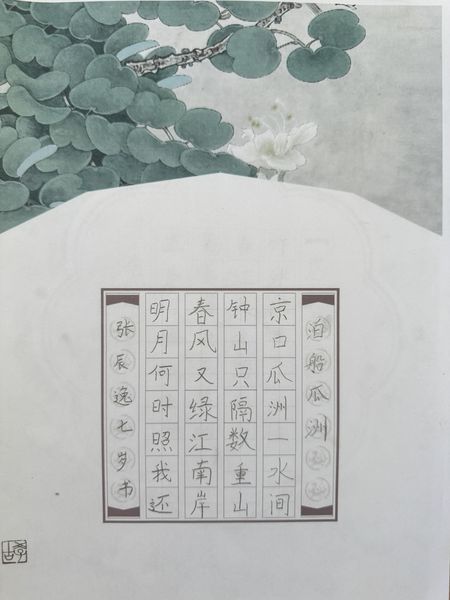 泊船瓜洲
京口瓜洲一水间
钟山只隔数重山
春风又绿江南岸
明月何时照我还
张辰逸七岁书